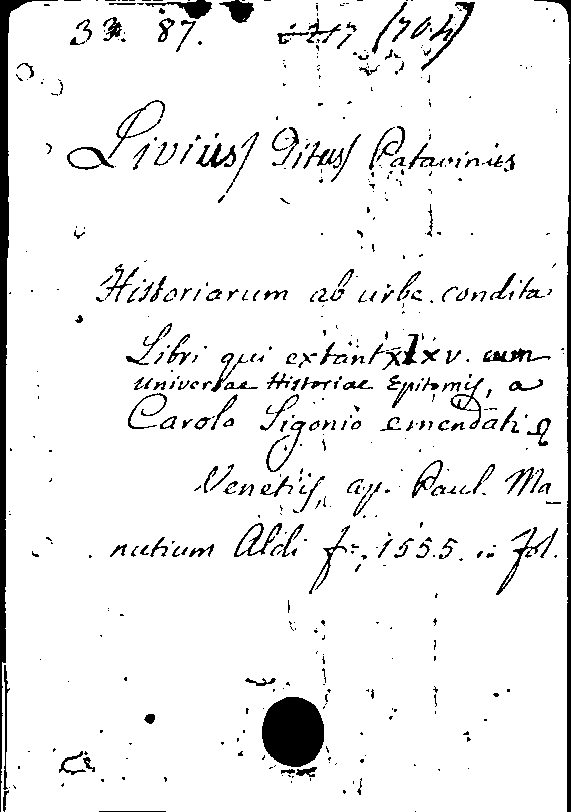 33. 87. (704)
Livius, Titus, Patavinus
Historiarum ab urbe condita
Libri qui extant xlxv. cum
universae Historiae Epitomis, a
Carolo Sigonio emendati &
Venetiis, ap. Paul. Ma-
nutium Aldi f. 1555. in fol.